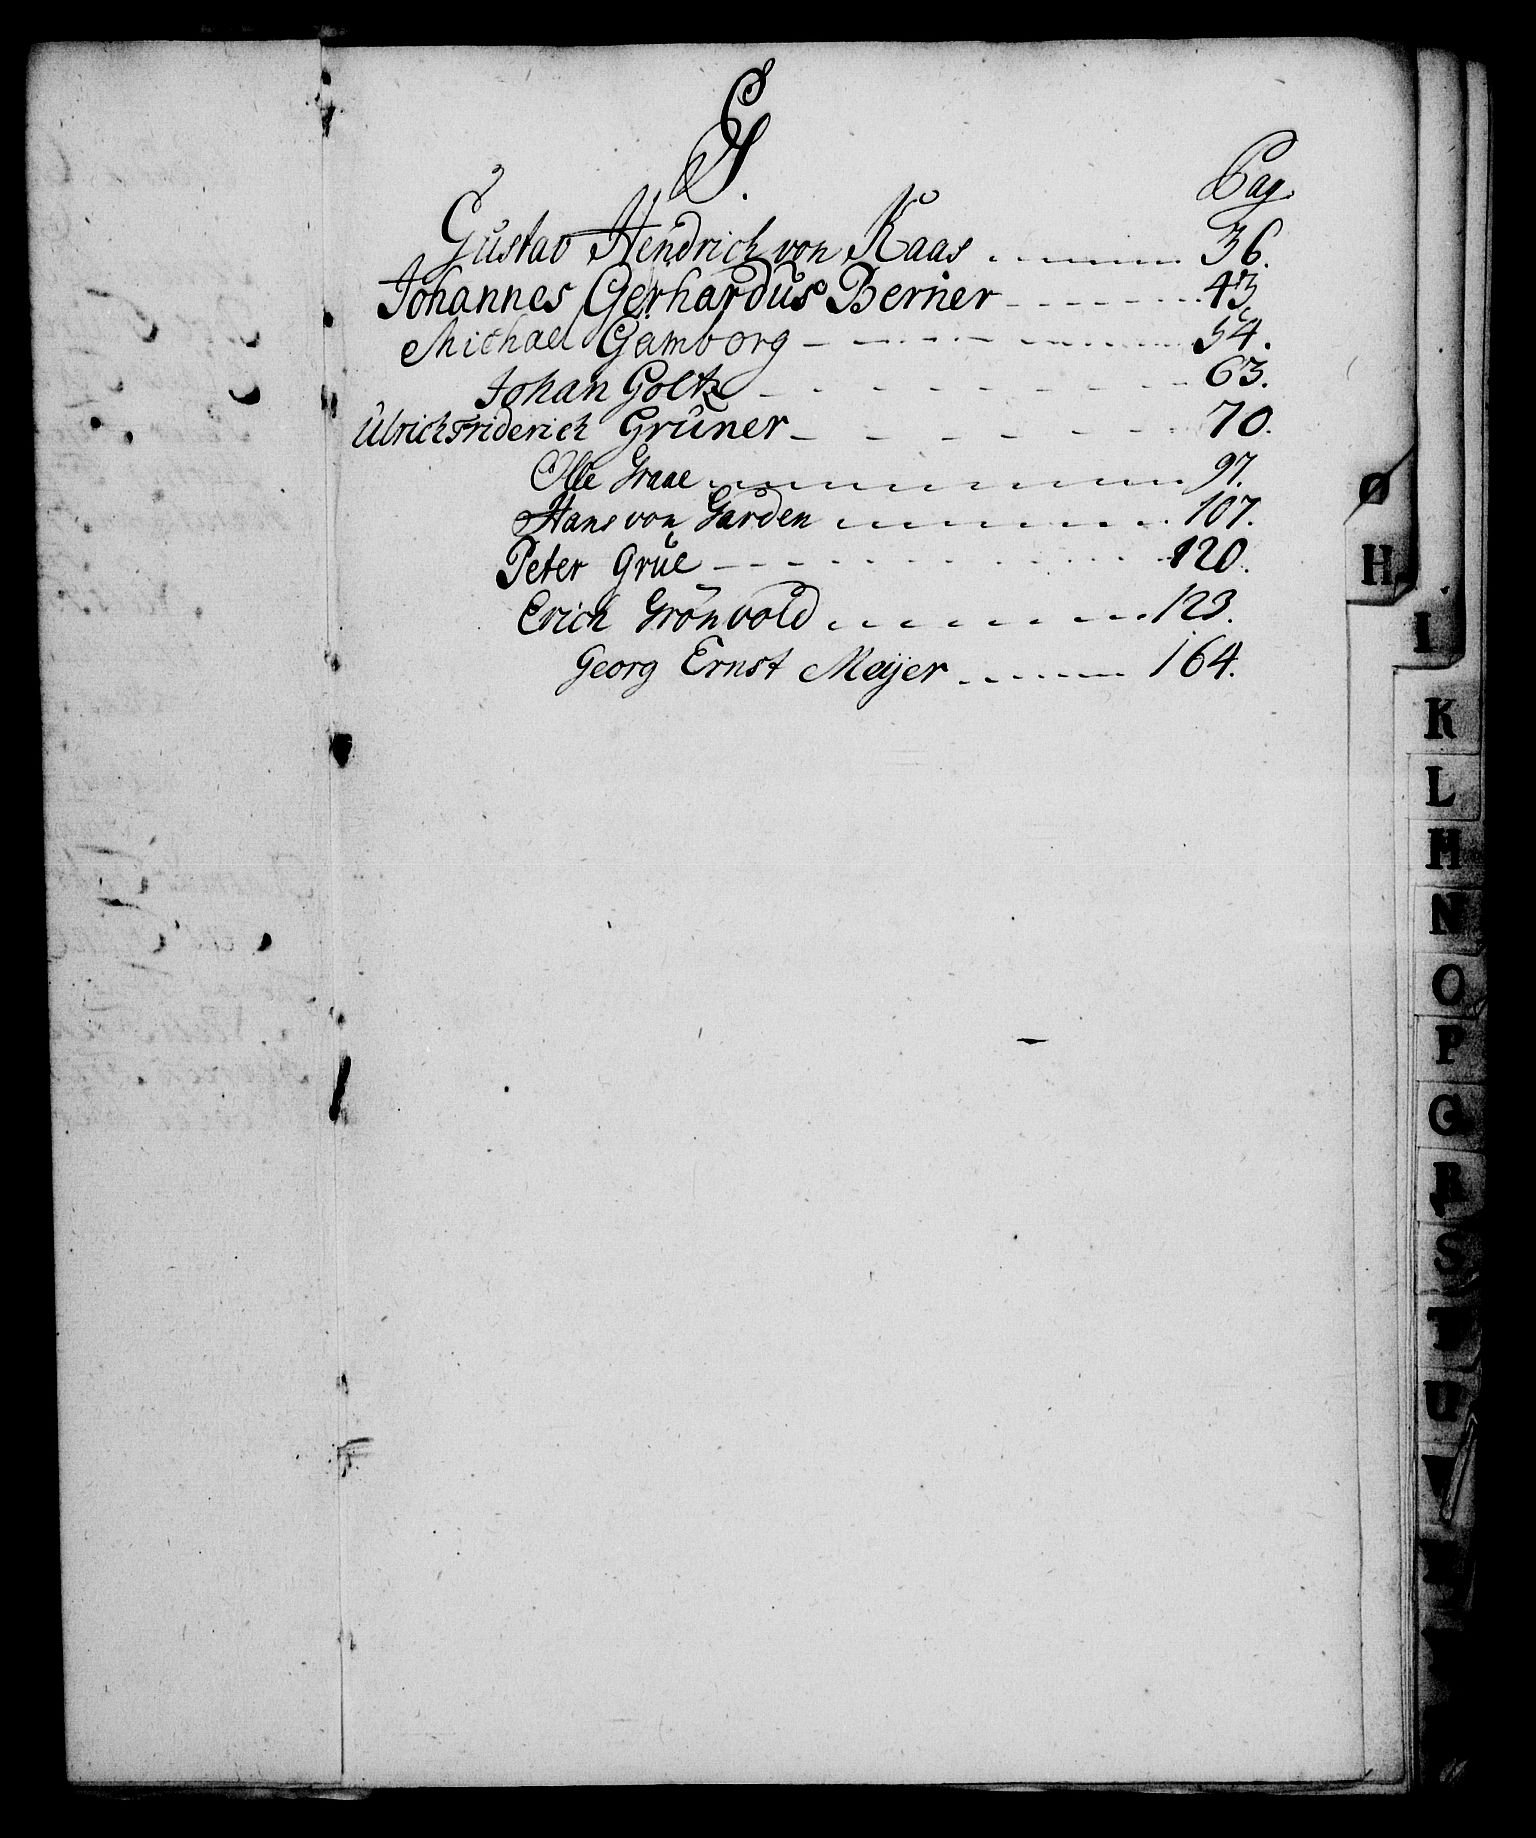 G.
Pag.
Gustav Hendrich von Kaas 36.
Johannes Gerhardus Berner 43.
Michael Gamborg 54.
Johan Goltz 63.
Ulrich Friderich Grüner 70.
Olle Graae 97.
Hans von Garden 107.
Peter Grue 120.
Erich Grönvold 123.
Georg Ernst Meijer 164.
Ø
H
I
K
L
M
N
O
P
Q
R
S
T
U
V